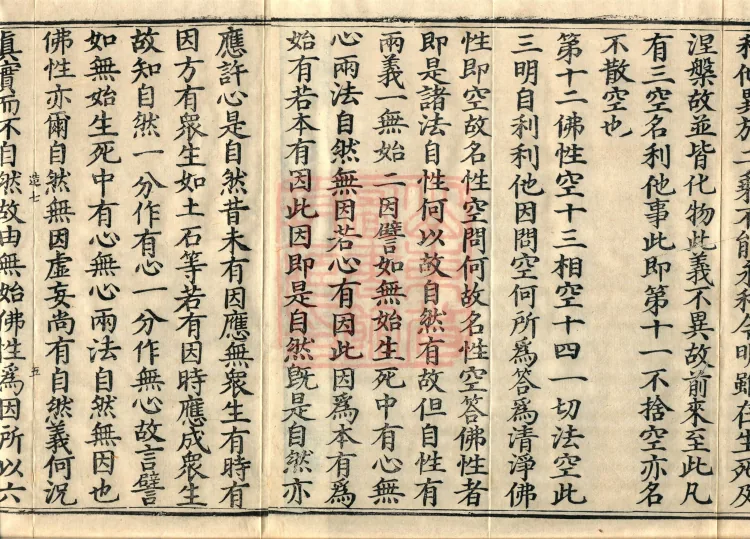 利他異於二乘不能永利今明雖在生死及
涅槃故並皆化物此義不異故前來至此凡
有三空名利他事此即第十一不捨空亦名
不散空也
第十二佛性空十三相空十四一切法空此
三明自利利他因問空何所爲答爲清淨佛
性即空故名性空問何故名性空答佛性者
即是諸法自性何以故自然有故但自性有
兩義一無始二因譬如無始生死中有心無
心兩法自然無因若心有因此因爲本有爲
始有若本有因此因即是自然旣是自然亦
應許心是自然昔未有因應無衆生有時有
因方有衆生如土石等若有因時應成衆生
故知自然一分作有心一分作無心故言譬
如無始生死中有心無心兩法自然無因也
佛性亦爾自然無因虛妄尚有自然義何況
造七
五
真實而不自然故由無始佛性爲因所以六